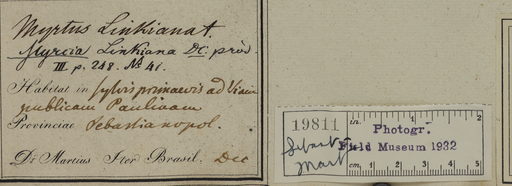 Myrtus Linkiana †.
Myrcia Linkiana DC. prodr.
III p. 248. No 41.
Habitat in sylvis primaevis ad Viam
publicam Paulinam
Provinciae Sebastianopol.
Dr Martius Iter Brasil. Dec
19811
Mart
in. 1 2
Photogr.
Field Museum 1932
cm. 1 2 3 4 5